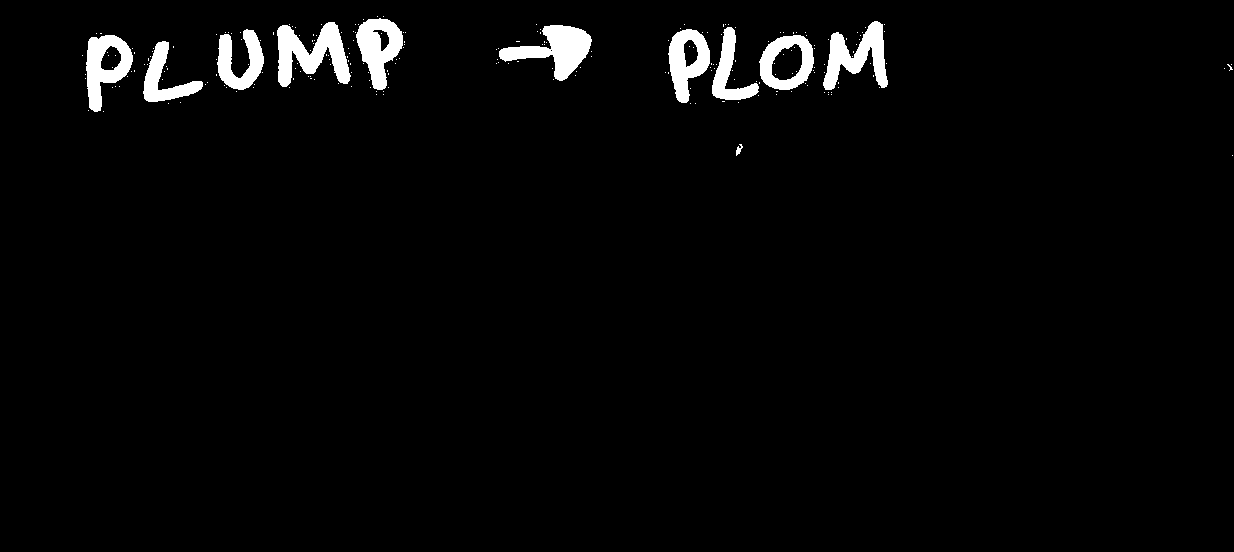 PLUMP → PLOM